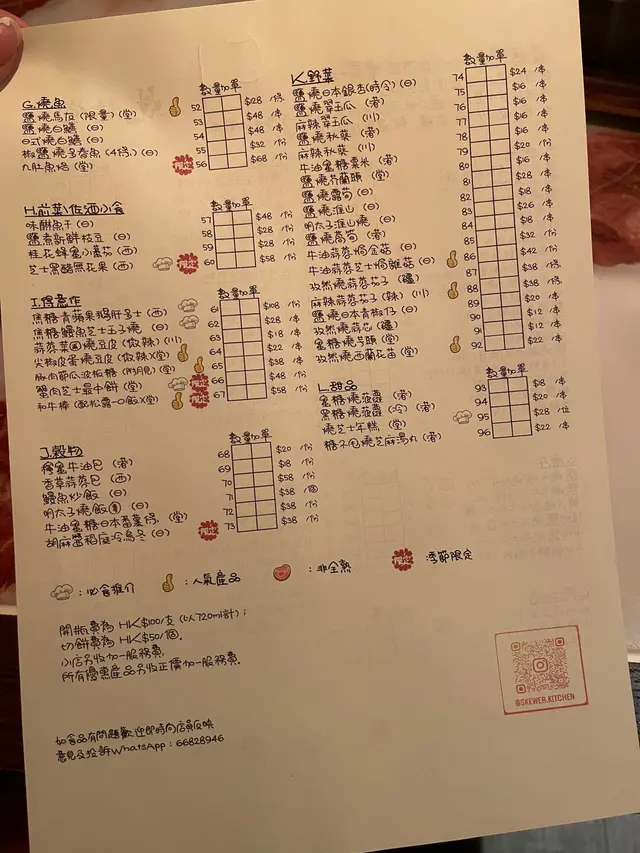 數量加單
G.燒魚
鹽燒馬友(限量)(堂) 52 $28 /條
鹽燒白鱔 (日) 53 $48 /串
日式燒白鱔 (日) 54 $48 /串
椒鹽燒多春魚(4條)(日) 55 $32 /份
九肚魚焙(堂) 限定 56 $68 /份
數量加單
H.前菜\佐酒小食
味醂魚干(日) 57 $48 /份
鹽煮新鮮枝豆 (日) 58 $28 /份
桂花蜂蜜小番茄(西) 59 $28 /份
芝士黑醋無花果 (西) 限定 60 $58 /份
數量加單
I.得意作
焦糖青蘋果鵝肝多士(西) 61 $108 /份
焦糖鰻魚芝士玉子燒 (日) 62 $28 /串
蒜蓉菜圃燒豆皮(微辣)(川) 63 $18 /串
尖椒皮蛋燒豆皮(微辣)(堂) 64 $22 /串
豚肉節瓜波板糖(附月見)(堂) 65 $38 /串
蟹肉芝士最中餅(堂) 限定 66 $48 /份
和牛棒(配松露一口飯)(堂) 限定 67 $58 /份
數量加單
J.穀物
蜂蜜牛油包(港) 68 $20 /份
香草蒜蓉包(西) 69 $18 /份
鰻魚炒飯 (日) 70 $58 /份
明太子燒飯團(日) 71 $38 /個
牛油蜜糖日本番薯條 (堂) 72 $38 /份
胡麻醬稻庭冷烏冬(日) 限定 73 $38 /份
數量加單
K.野菜
鹽燒日本銀杏(時令)(日) 74 $24 /串
鹽燒翠玉瓜 (港) 75 $16 /串
麻辣翠玉瓜 (川) 76 $16 /串
鹽燒秋葵 (港) 77 $16 /串
麻辣秋葵 (川) 78 $16 /串
牛油蜜糖粟米 (港) 79 $20 /份
鹽燒芥蘭頭 (堂) 80 $16 /串
鹽燒露筍(日) 81 $28 /串
鹽燒淮山 (日) 82 $18 /串
明太子淮山燒 (日) 83 $26 /串
鹽燒萵筍(港) 84 $16 /串
牛油蒜蓉焗金菇(日) 85 $32 /份
牛油蒜蓉芝士焗雜菇(日) 86 $42 /份
孜然燒蒜蓉茄子(疆) 87 $38 /份
麻辣蒜蓉茄子(辣)(川) 88 $38 /份
鹽燒日本青椒仔(日) 89 $20 /串
孜然燒蒜芯(疆) 90 $12 /串
蜜糖燒芋頭(堂) 91 $12 /串
孜然燒西蘭花苗(堂) 92 $22 /串
數量加單
L.甜品
蜜糖燒菠蘿 (港) 93 $18 /串
黑糖燒菠蘿(冷)(港) 94 $20 /串
燒芝士年糕(堂) 95 $28 /位
糖不甩燒芝麻湯丸(港) 96 $22 /串
:必食推介 :人氣產品 :非全熟 限定 :季節限定
開瓶費為 HK$100/支(以720ml計);
切餅費為 HK$50/個.
小店另收加一服務費
所有優惠產品另收正價加一服務費.
@SKEWER.KITCHEN
如食品有問題歡迎即時向店員反映
意見及投訴WhatsApp:66828946